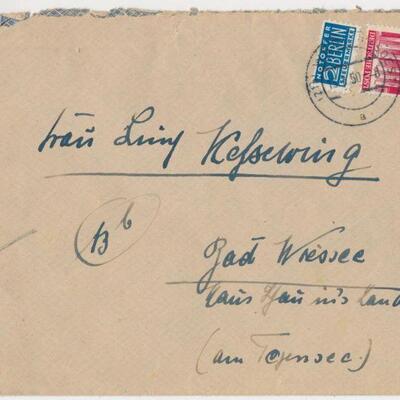 NOTOPFER
2 BERLIN
STEUERMARKE
DEUTSCHE POST
50
a
Frau Liny Kesselring
B b
Bad Wiessee
Haus Schau ins Land
(am Tegernsee)